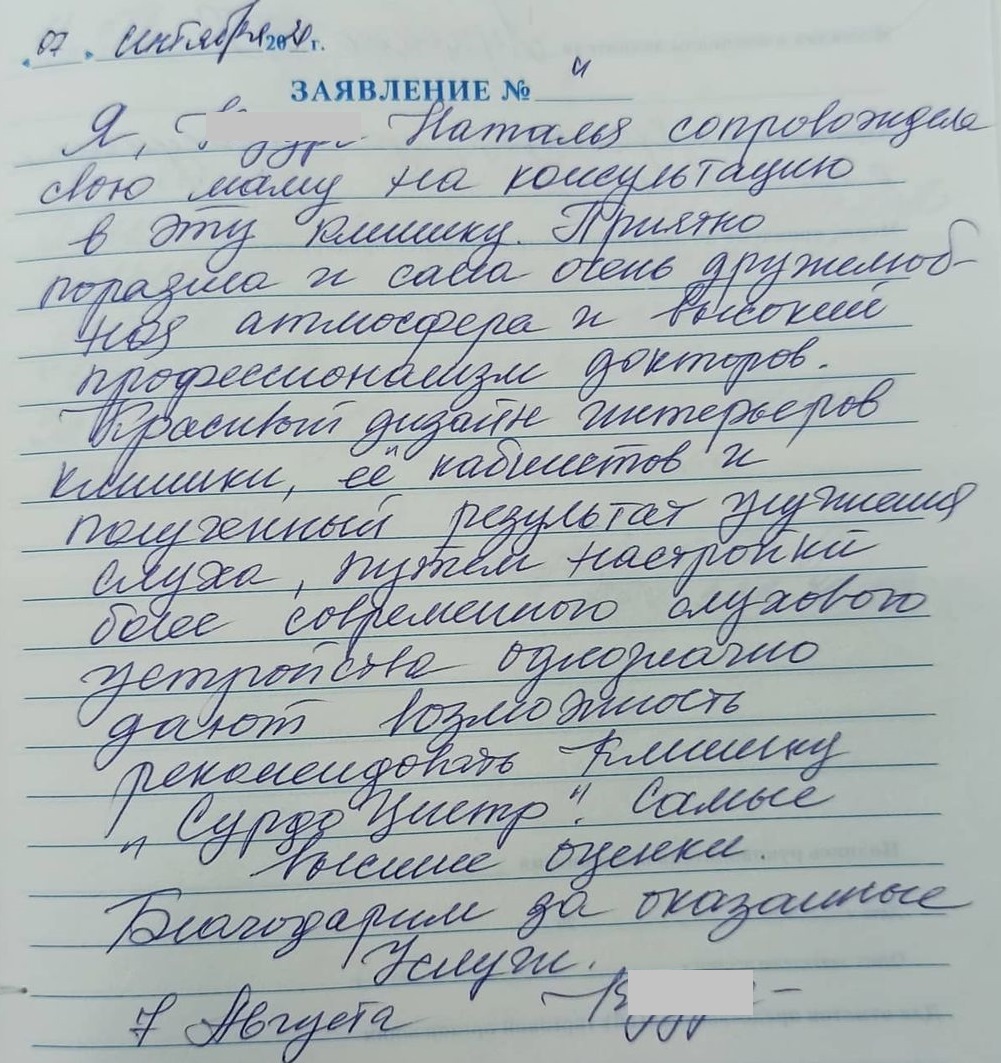 „07" сентября 2020 г.
ЗАЯВЛЕНИЕ № 4
Я, Наталья сопровождала
свою маму на консультацию
в эту клинику. Приятно
поразила и сама очень дружелюб-
ная атмосфера и высокий
профессионализм докторов.
Красивый дизайн интерьеров
клиники, её кабинетов и
полученный результат улучшения
слуха, путем настройки
более современного слухового
устройства однозначно
дают возможность
рекомендовать клинику
"Сурдо Центр". Самые
высшие оценки.
Благодарим за оказанные
услуги.
7 Августа